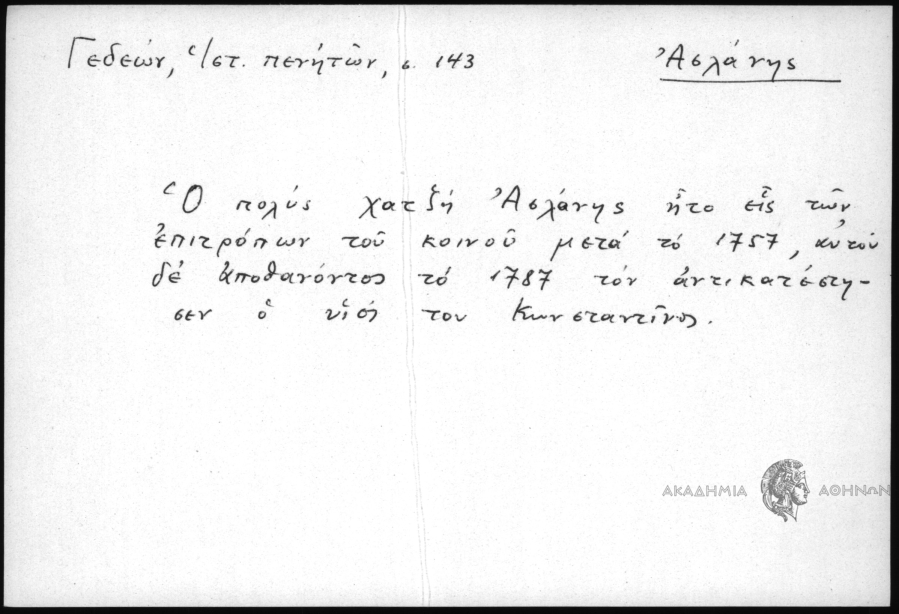 Γεδεών, Ἱστ. πενήτων, σ. 143
Ἀσλάνης
Ὁ πολύς χατζῆ Ἀσλάνης ἦτο εἷς τῶν
ἐπιτρόπων τοῦ κοινοῦ μετά τό 1757, αὐτοῦ
δέ ἀποθανόντος τό 1787 τόν ἀντικατέστη-
σεν ὁ υἱός του Κωνσταντῖνος.
ΑΚΑΔΗΜΙΑ ΑΘΗΝΩΝ